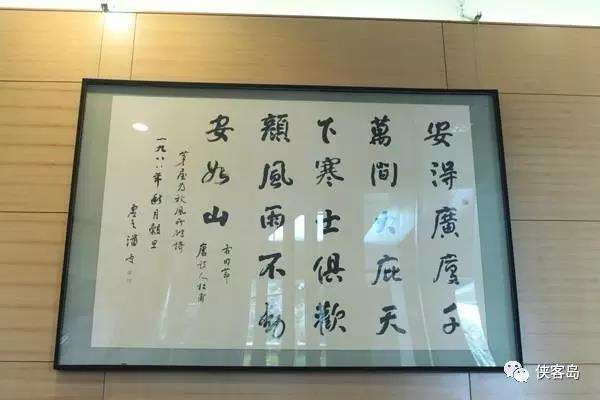 安得廣廈千
萬間大庇天
下寒士俱歡
顏風雨不動
安如山
唐詩人杜甫
茅屋为秋風所破詩
一九八八年秋月穀旦
侠客岛